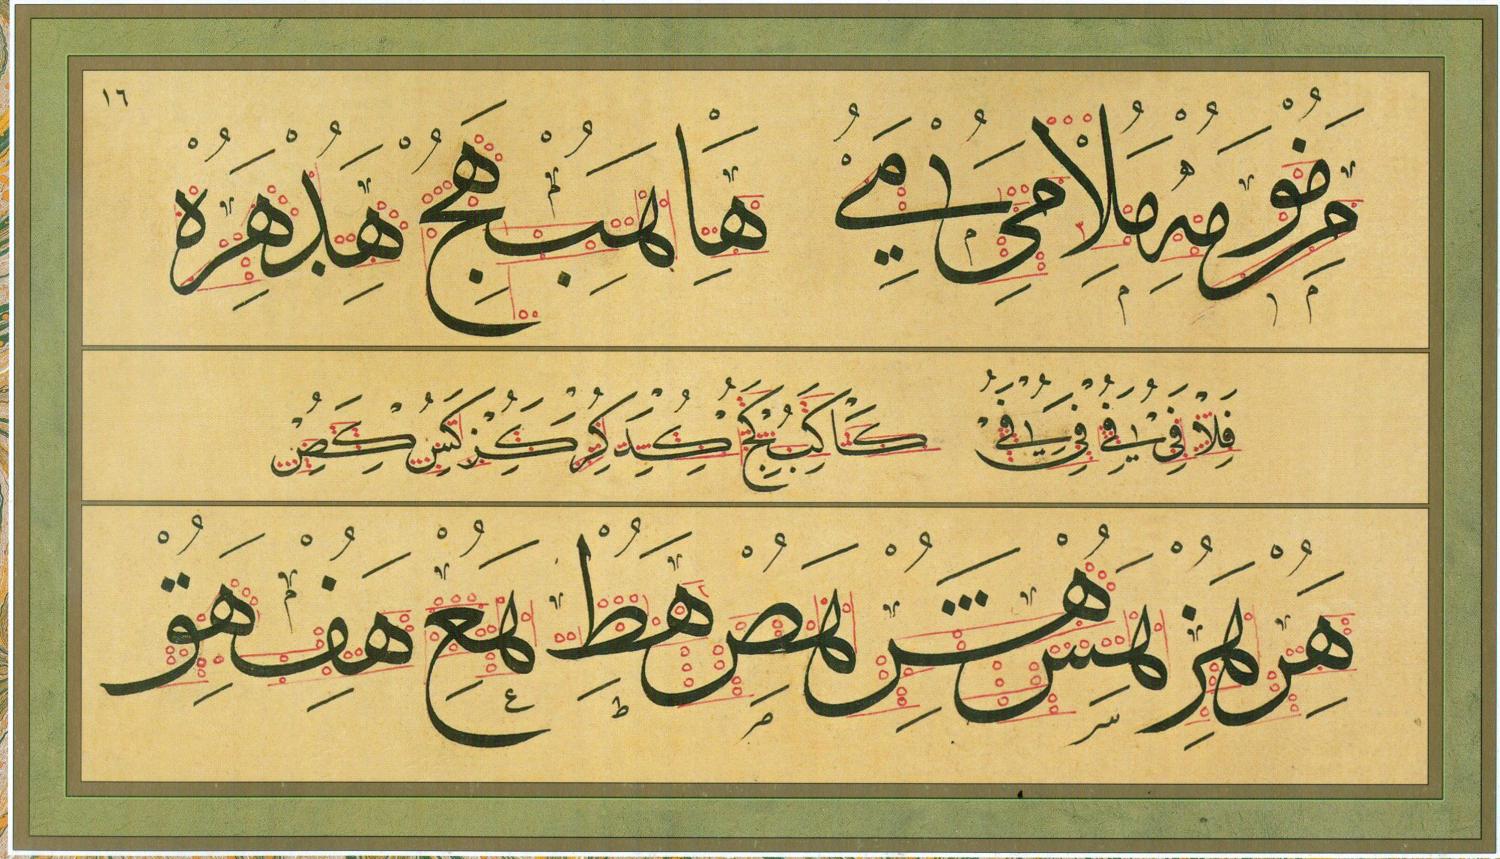 ١٦
مر مو مه ملا مى مے ها هب هج هد هر ه
فلا فى فے فى فے كا كب كج كد كر كز كس كص
هر هز هس هش هص هط هع هف هق